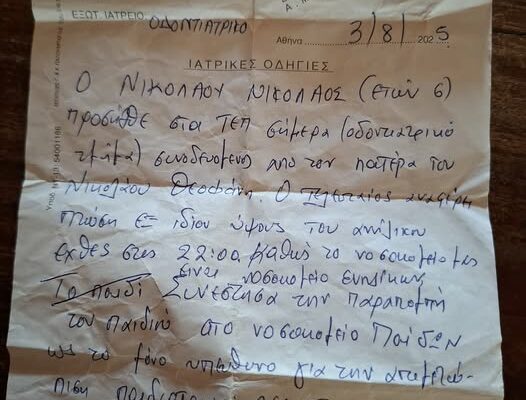 ΕΞΩΤ. ΙΑΤΡΕΙΟ ΟΔΟΝΤΙΑΤΡΙΚΟ
Αθήνα 3/8/2025
ΙΑΤΡΙΚΕΣ ΟΔΗΓΙΕΣ
Ο ΝΙΚΟΛΑΟΥ ΝΙΚΟΛΑΟΣ (ετών 6)
προσήλθε στα ΤΕΠ σήμερα (οδοντιατρικό
τμήμα) συνοδευόμενος από τον πατέρα του
Νικολάου Θεοφάνη. Ο τελευταίος αναφέρει
πτώση εξ ιδίου ύψους του ανηλίκου
εχθές στις 22:00. Καθώς το νοσοκομείο μας
είναι νοσοκομείο ενηλίκων
Το παιδί Συνέστησα την παραπομπή
του παιδιού στο νοσοκομείο Παίδων
ως το μόνο υπεύθυνο για την αντιμετώ-
πιση